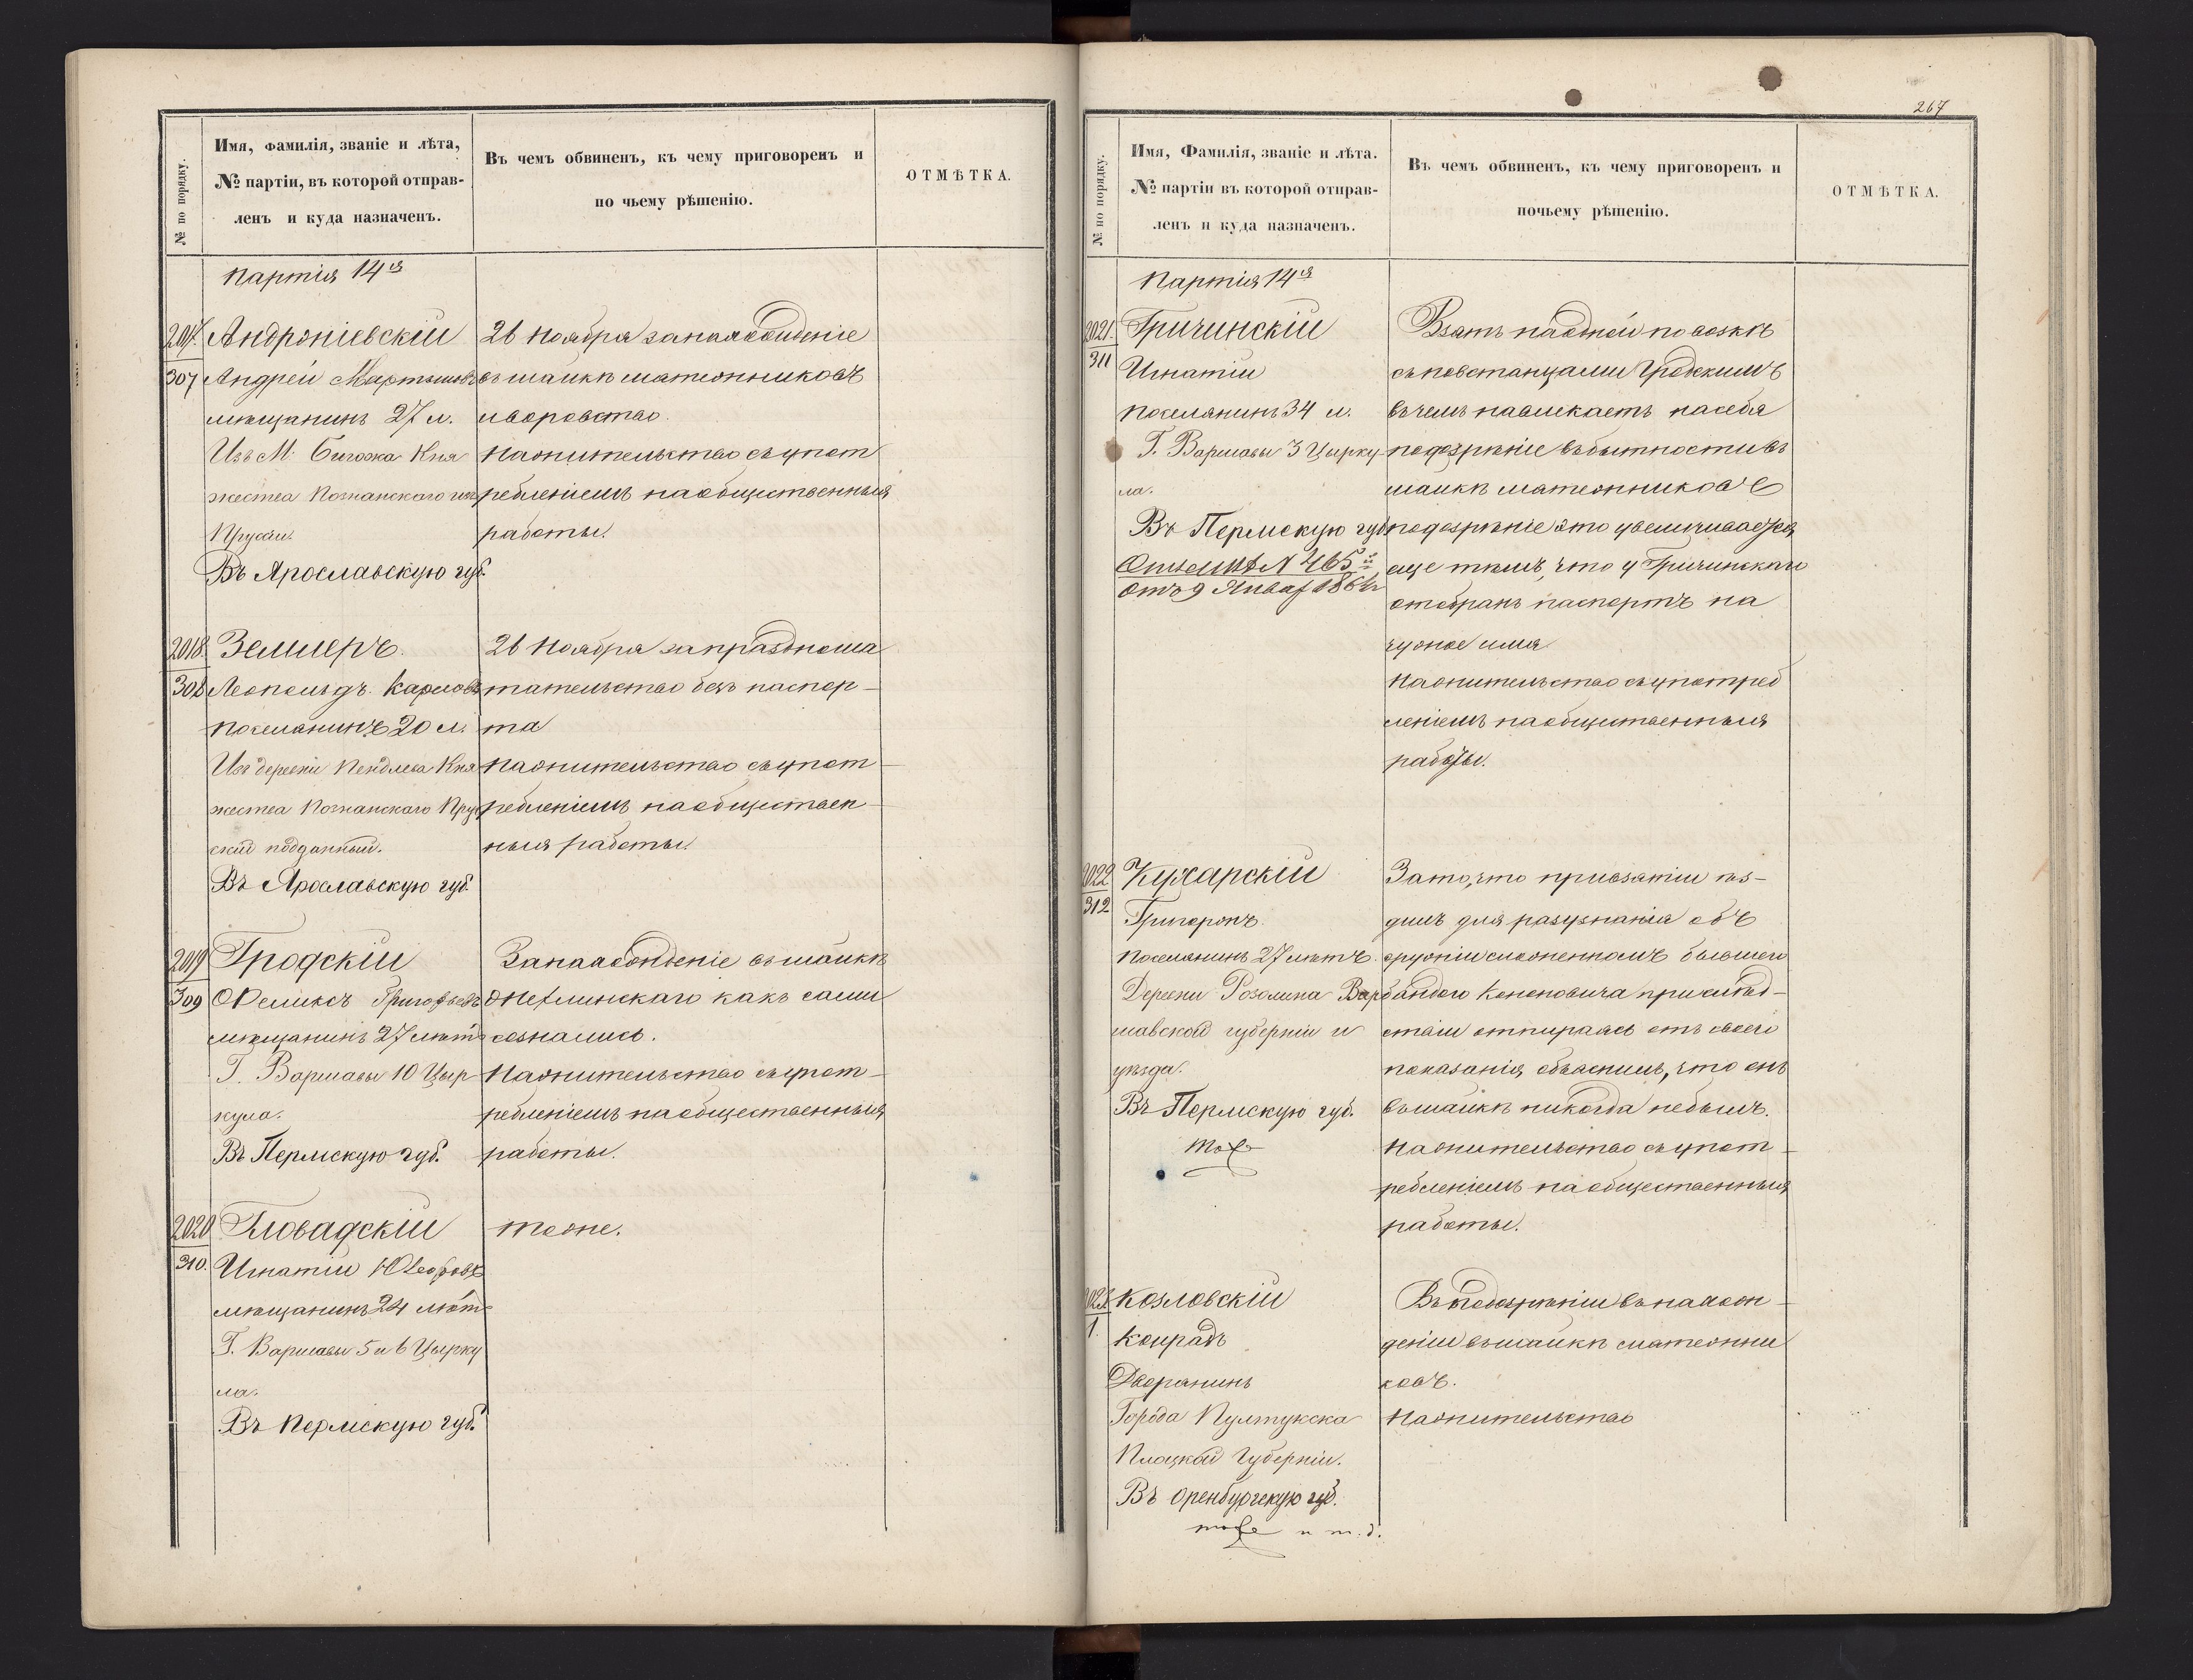 Имя, фамилія, званіе и лѣта,
№ партіи, въ которой отправ-
ленъ и куда назначенъ.
№ по порядку.
Въ чемъ обвиненъ, къ чему приговоренъ и
по чьему рѣшенію.
ОТМѢТКА.
Партія 14я
2017.
307
Андроніевскій
Андрей Мартыновъ
мѣщанинъ 27 л.
Изъ М. Кня
жества Познанскаго
Прусіи.
Въ Ярославскую губ.
26 Ноября за нахожденіе
въ шайкѣ мятежниковъ
и воровство.
На жительство съ упот
ребленіемъ на общественныя
работы.
2018.
308
Земперъ.
Леопольдъ Карловъ
поселянинъ 20 л.
Изъ деревни Кня
жества Познанскаго Прус
скій подданный.
Въ Ярославскую губ.
26 Ноября за праздноша
тательство безъ паспор-
та
На жительство съ упот-
ребленіемъ на обществен-
ныя работы.
2019
309
Гродскій
Феликсъ Григорьевъ
мѣщанинъ 27 лѣтъ
Г. Варшавы 10 Цыр-
кула.
Въ Пермскую губ.
За нахожденіе въ шайкѣ
какъ сами
сознались.
На жительство съ упот-
ребленіемъ на общественныя
работы.
2020
310.
Гловадскій
Игнатій
мѣщанинъ 24 лѣтъ
Г. Варшавы 5 и 6 Цырку
ла.
Въ Пермскую губ.
тоже.
267
Имя, Фамилія, званіе и лѣта.
№ партіи въ которой отправ-
ленъ и куда назначенъ.
№ по порядку.
Въ чемъ обвиненъ, къ чему приговоренъ и
почьему рѣшенію.
ОТМѢТКА.
Партія 14я
2021.
311
Гричинскій
Игнатій
поселянинъ 34 л.
Г. Варшавы 3 Цырку-
ла.
Въ Пермскую губ.
№ 465
отъ 9 Января 1864
Взятъ на одной повозкѣ
съ повстанцами Гродскимъ
въ чемъ навлекаетъ на себя
подозрѣніе въ бытности въ
шайкѣ мятежниковъ
подозрѣніе это увеличивается
еще тѣмъ, что у Гричинскаго
отобранъ паспортъ на
чужое имя
На жительство съ употреб
леніемъ на общественныя
работы.
2022
312
Кухарскій
Григоръ
поселянинъ 27 лѣтъ.
Деревни Розолина Вар
шавской губерніи и
уѣзда.
Въ Пермскую губ.
тоже
За то, что при взятіи ѣз-
дилъ для разузнанія объ
оружіи сложенномъ бывшею
бандою Кононовича при слѣд-
ствіи отпираясь отъ своего
показанія объяснилъ, что онъ
въ шайкѣ никогда не былъ.
На жительство съ упот-
ребленіемъ на общественныя
работы.
2023
1.
Козловскій
Конрадъ
Дворянинъ
Города Пултукска
Плоцкой Губерніи.
Въ Оренбургскую губ.
тоже и т.д.
Въ подозрѣніи въ нахож-
деніи въ шайкѣ мятежни
ковъ.
На жительство